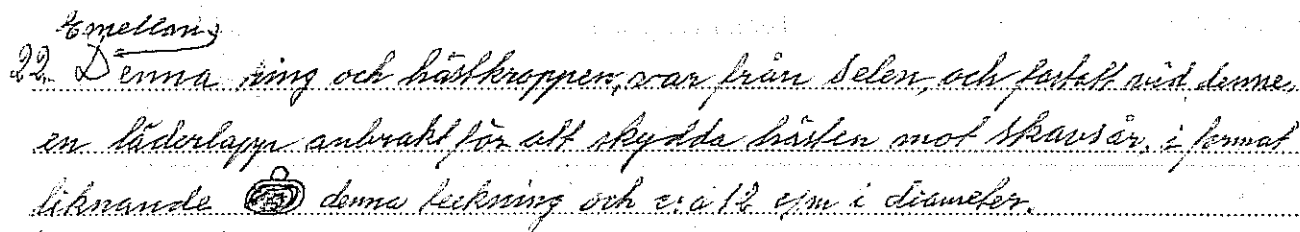 Emellan
22. Denna ring och hästkroppen, var från Selen, och fastsatt vid denne,
en läderlapp anbrakt för att skydda hästen mot skavsår, i format
liknande denna teckning och c:a 12 c/m i diameter.